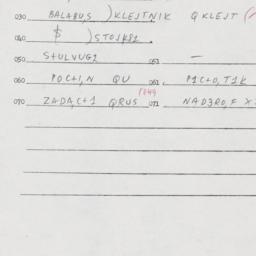 030 BALABUS, )KLEJTNIK QKLEJT
040 $ )STOJKB2
050 S+ULVUG2 053 —
060 POC+I,N QU 061 P1C+O,T1K
1844
070 ZADA,C+1 QRUS 071 NAD3RO,F X